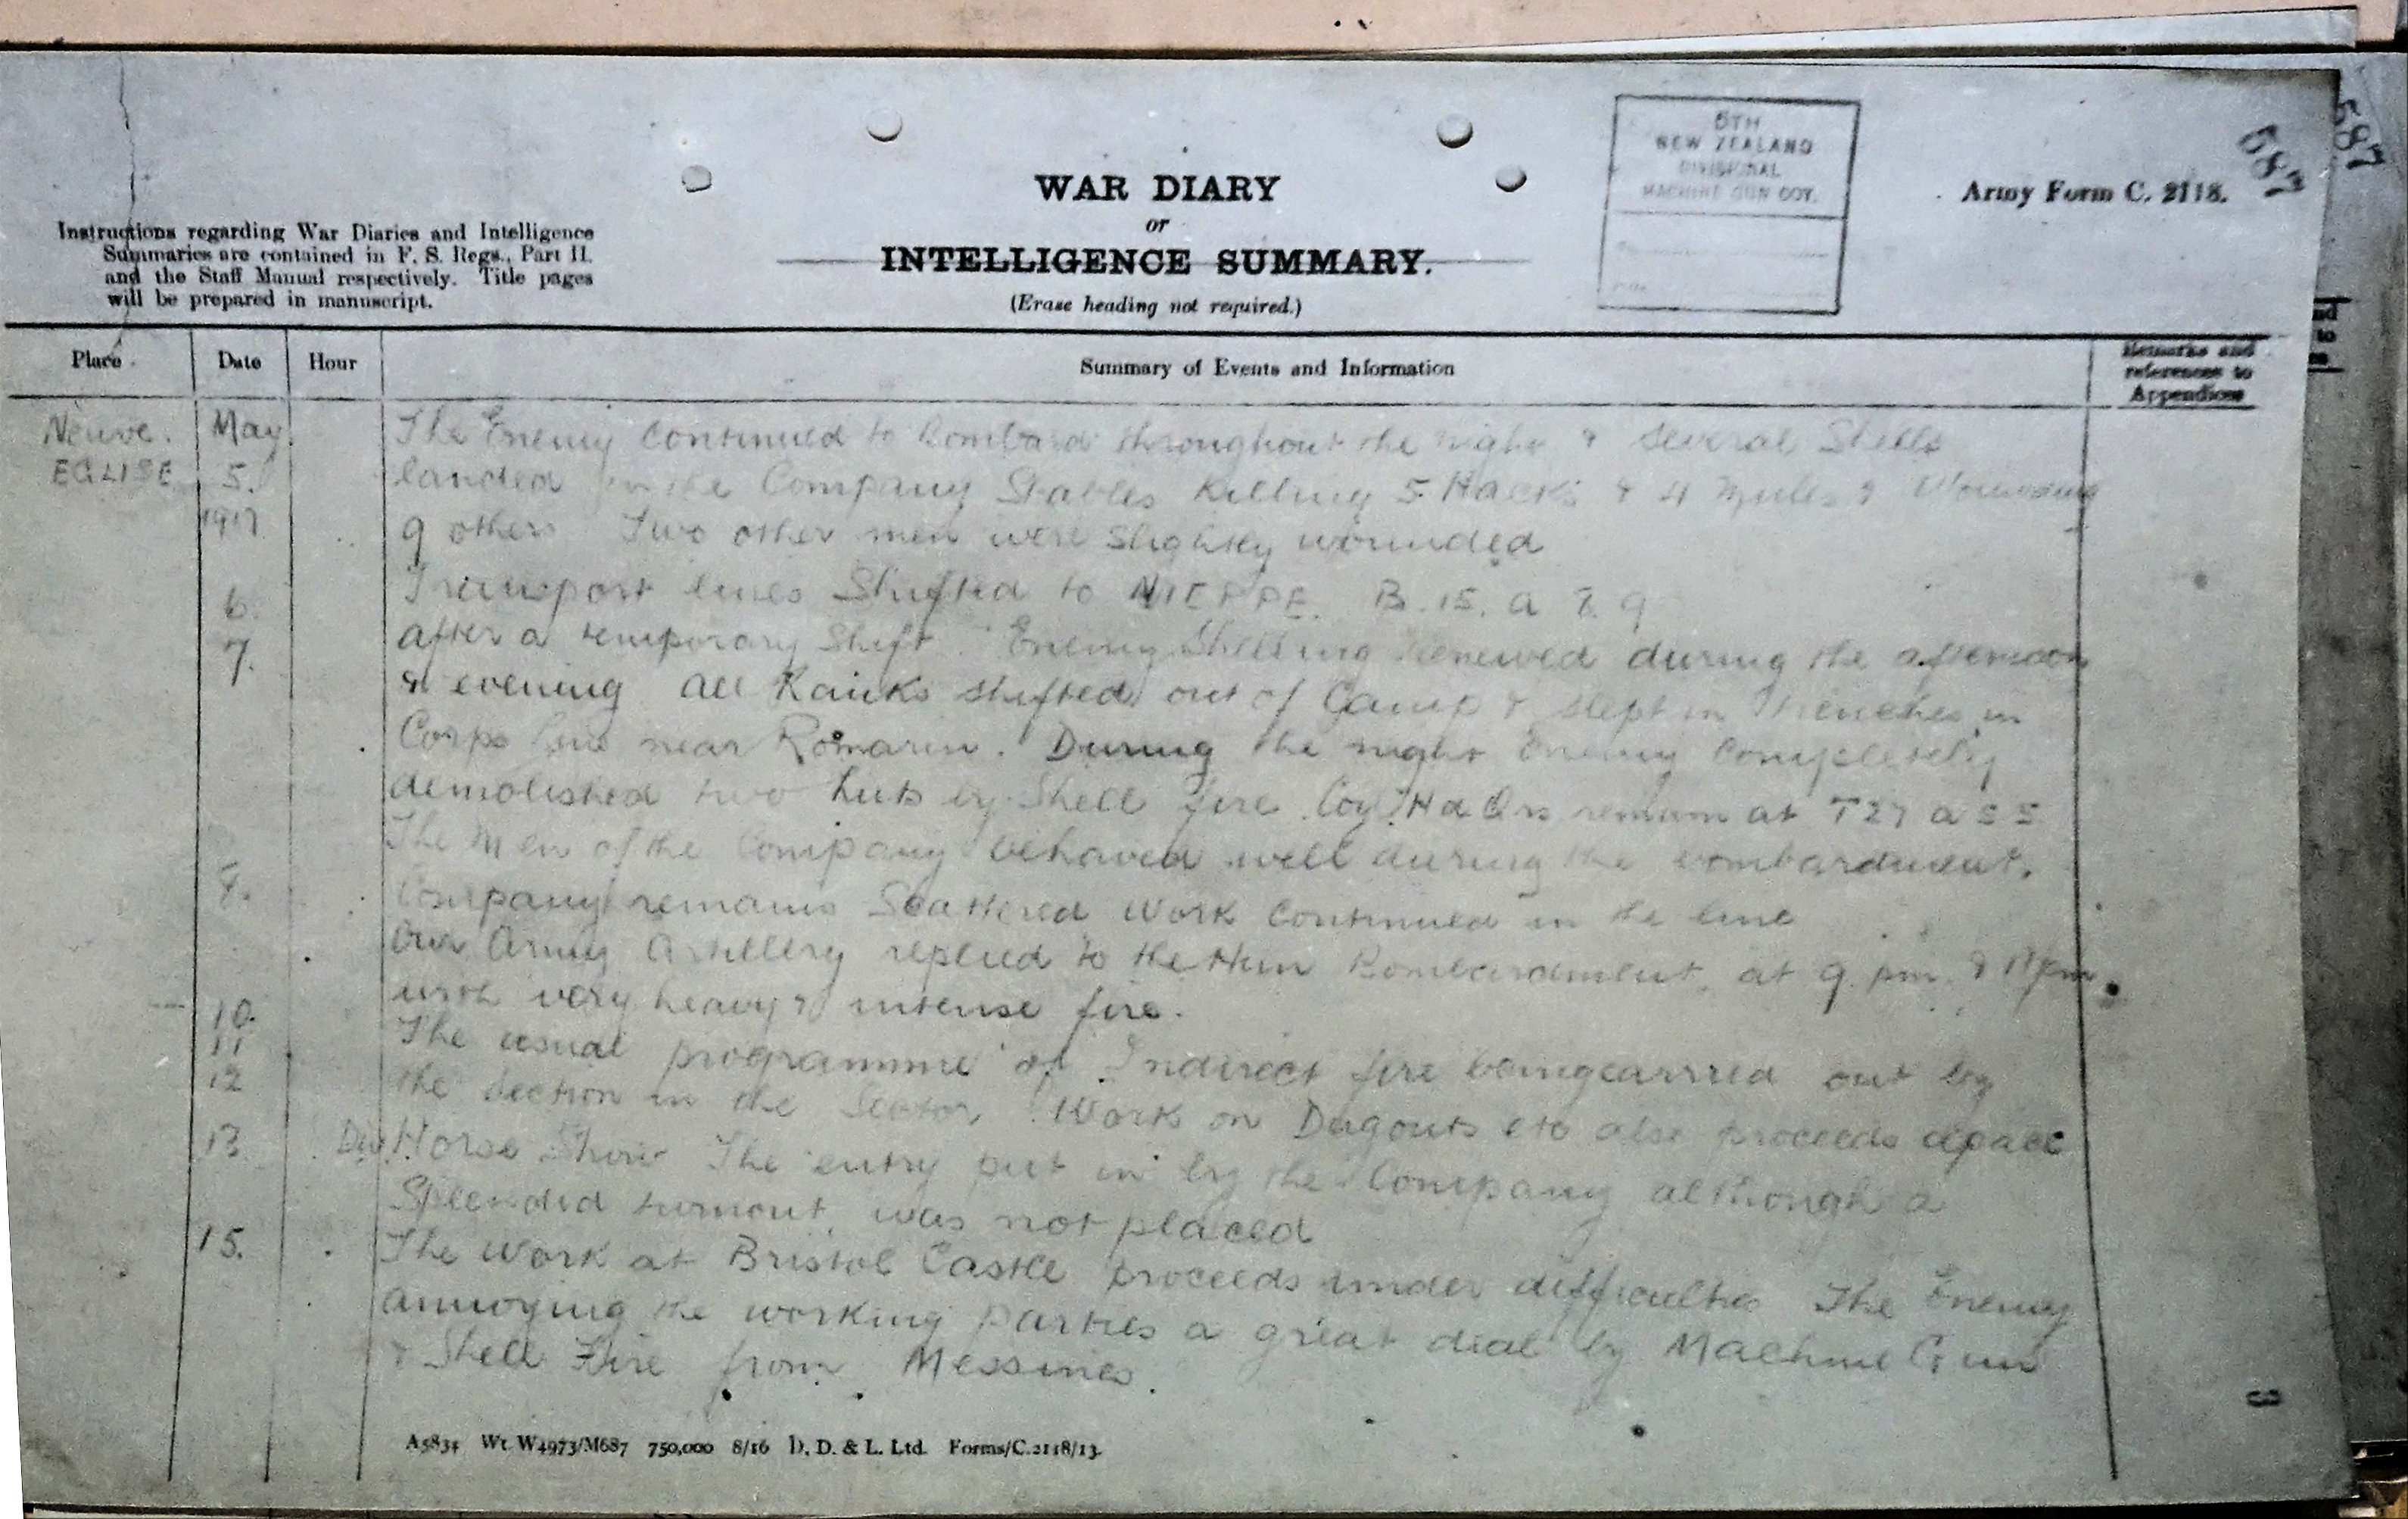 587
587
5TH
NEW ZEALAND
DIVISIONAL
MACHINE GUN COY.
Army Form C. 2118.
WAR DIARY
or
INTELLIGENCE SUMMARY.
(Erase heading not required.)
Instructions regarding War Diaries and Intelligence
Summaries are contained in F. S. Regs., Part II.
and the Staff Manual respectively. Title pages
will be prepared in manuscript.
Place Date Hour Summary of Events and Information Remarks and
references to
Appendices
Neuve. May The Enemy Continued to Bombard throughout the night & several Shells
EGLISE 5. landed in the Company Stables Killing 5 Hacks & 4 Mules & Wounding
1917 9 others Two other men were slightly wounded
6. Transport lines Shifted to NIEPPE. B. 15. a 8. 9
7. after a temporary Shift. Enemy Shelling renewed during the afternoon
& evening All Ranks shifted out of Camp & slept in Trenches in
Corps line near Romarin. During the night Enemy Completely
demolished two huts by Shell fire. Coy. Hd Qrs remain at T27 a 5 5
The Men of the Company behaved well during the bombardment.
8. Company remains Scattered Work Continued in the line
Our Army Artillery replied to the Hun Bombardment, at 9. pm. & 11 pm
with very heavy & intense fire.
10. The usual programme of Indirect fire being carried out by
11
12 the Section in the Sector, Work on Dugouts etc also proceeds apace
13. Div. Horse Show The entry put in by the Company although a
Splendid turnout, was not placed
15. The Work at Bristol Castle proceeds under difficulties The Enemy
annoying the working parties a great deal by Machine Gun
& Shell Fire from Messines.
A5834 Wt. W4973/M687 750,000 8/16 D, D. & L. Ltd. Forms/C.2118/13.